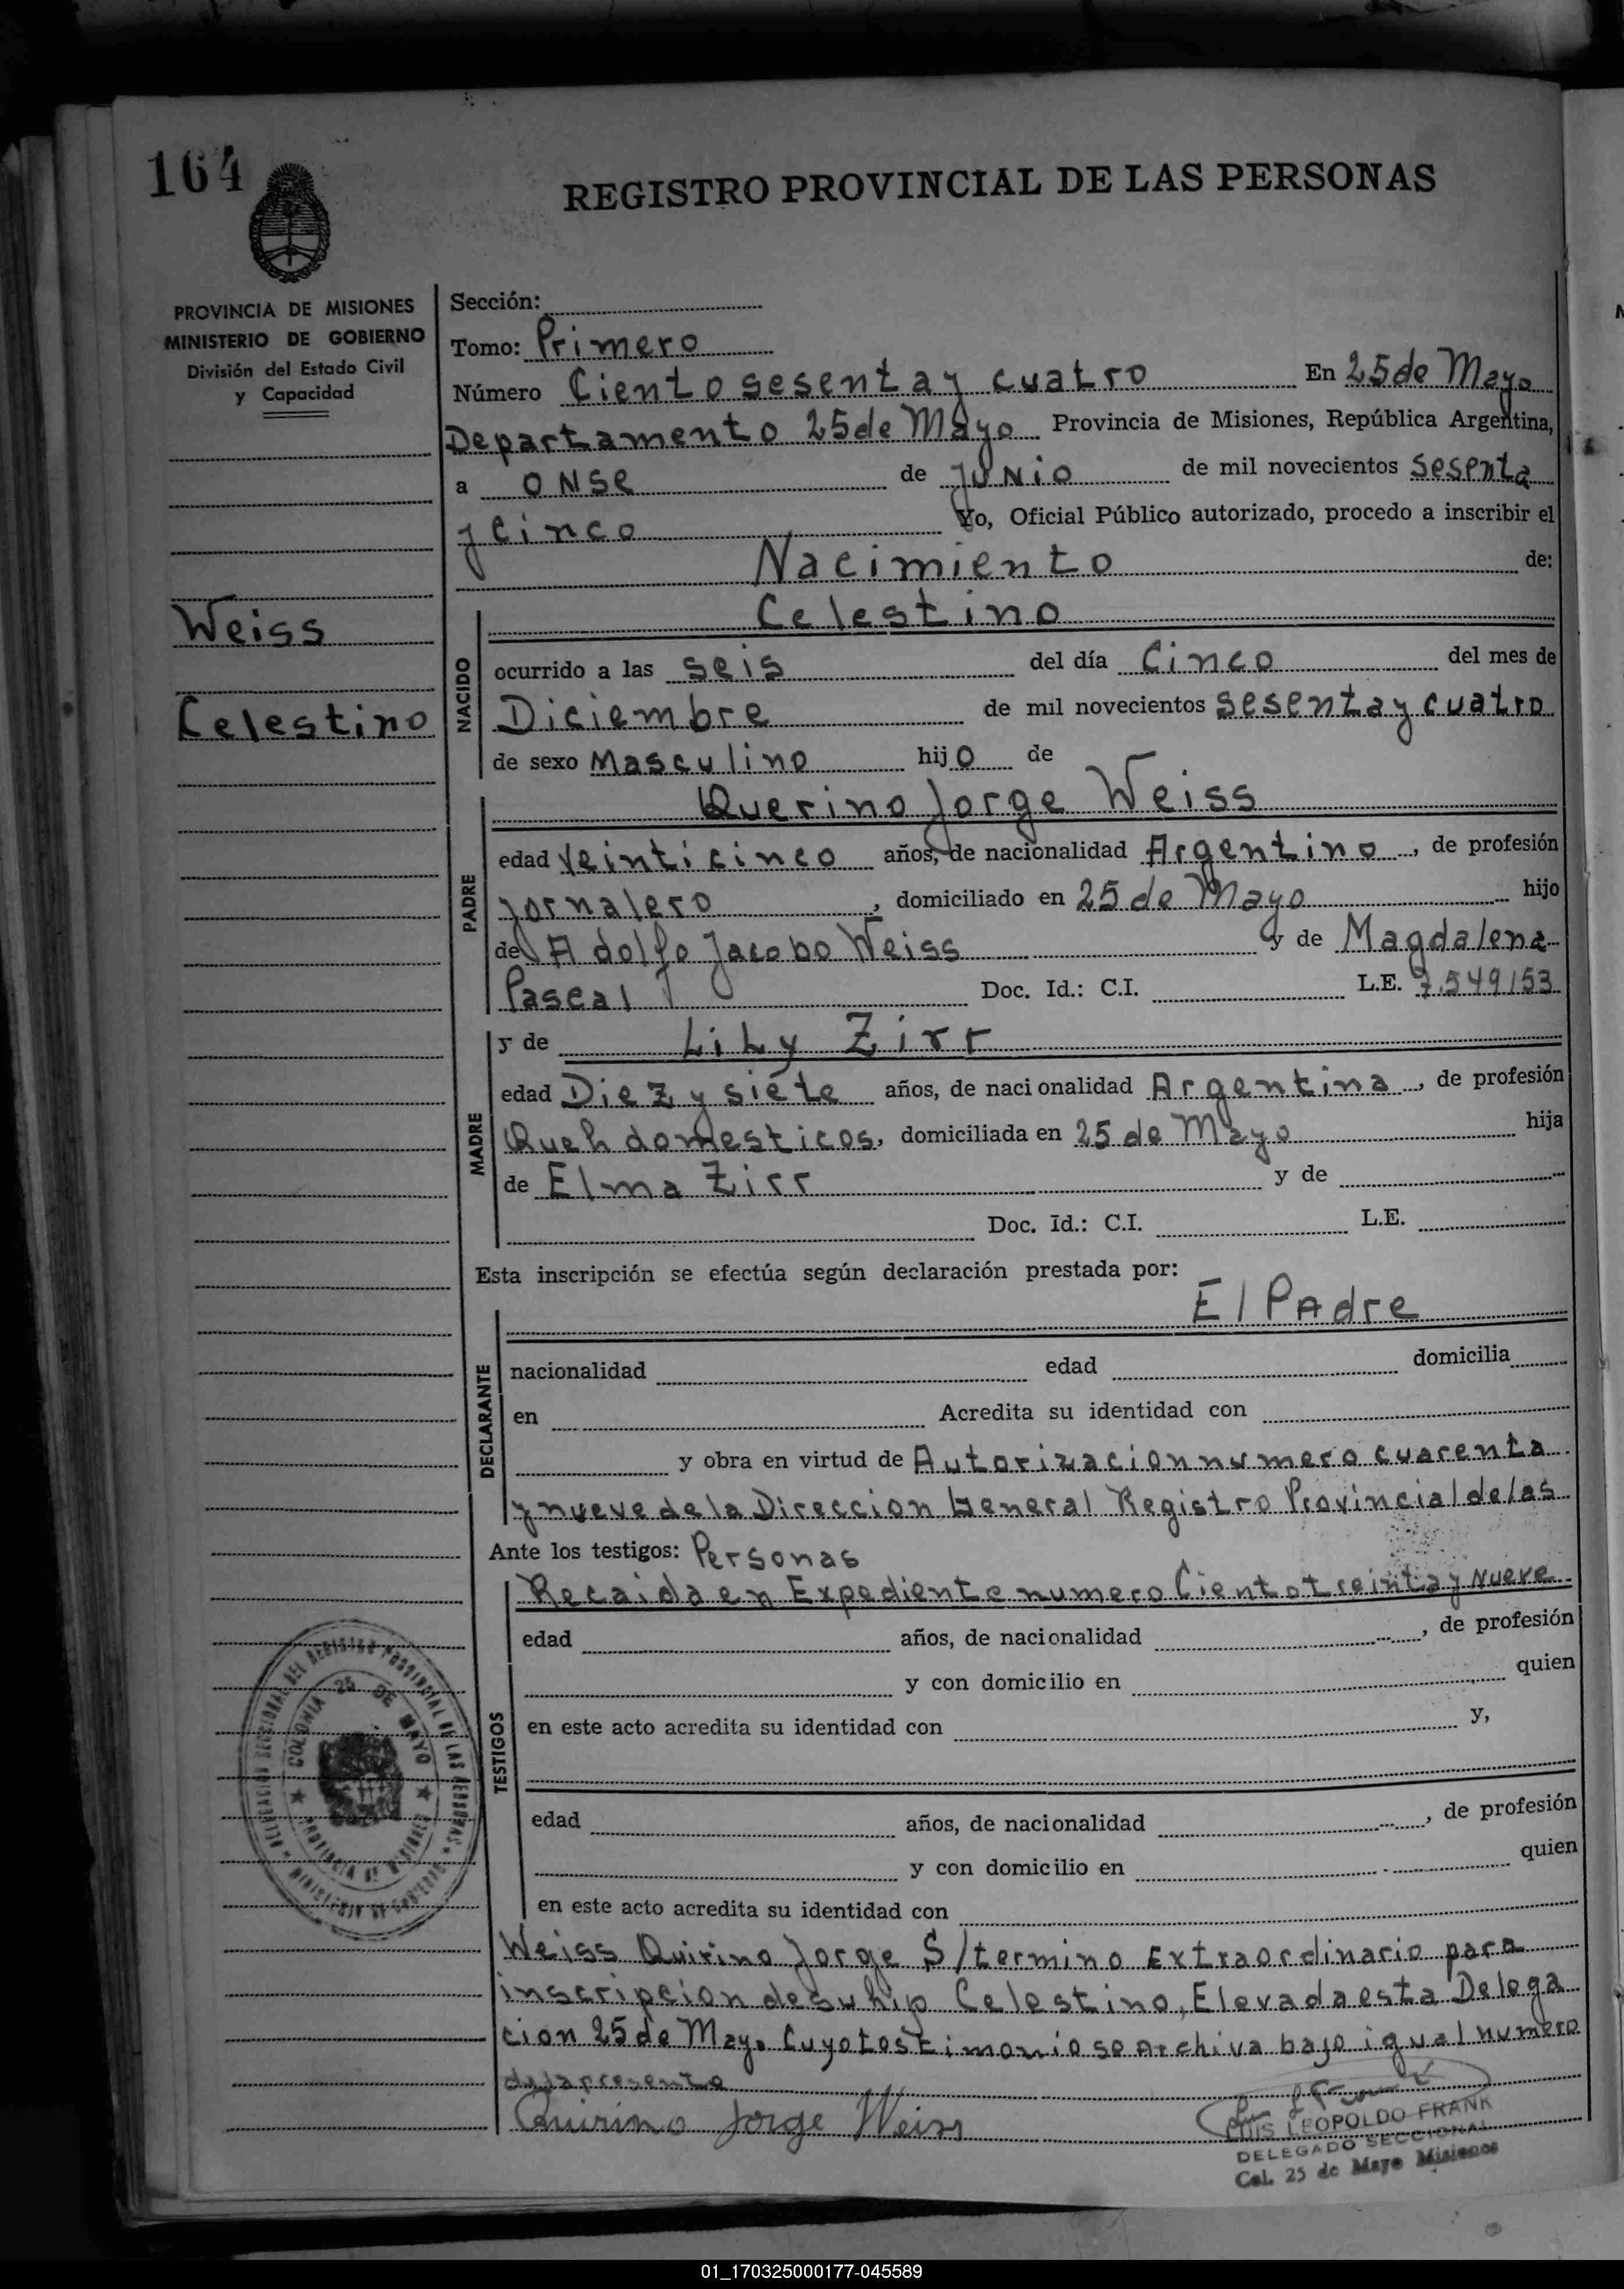 164
REGISTRO PROVINCIAL DE LAS PERSONAS
PROVINCIA DE MISIONES
MINISTERIO DE GOBIERNO
División del Estado Civil
y Capacidad
Weiss
Celestino
Sección:
Tomo: Primero
Número Ciento sesenta y cuatro En 25 de Mayo
Departamento 25 de Mayo Provincia de Misiones, República Argentina,
a onse de Junio de mil novecientos sesenta
y Cinco Yo, Oficial Público autorizado, procedo a inscribir el
Nacimiento de:
NACIDO
Celestino
ocurrido a las seis del día Cinco del mes de
Diciembre de mil novecientos sesenta y cuatro
de sexo Masculino hijo de
PADRE
Querino Jorge Weiss
edad veinticinco años, de nacionalidad Argentino, de profesión
Jornalero, domiciliado en 25 de Mayo hijo
de Adolfo Jacobo Weiss y de Magdalena
Pascal Doc. Id.: C.I. L.E. 7.549153
MADRE
y de Lily Zirr
edad Diez y siete años, de nacionalidad Argentina, de profesión
Queh domesticos, domiciliada en 25 de Mayo hija
de Elma Zirr y de
Doc. Id.: C.I. L.E.
Esta inscripción se efectúa según declaración prestada por:
El Padre
DECLARANTE
nacionalidad edad domicilia
en Acredita su identidad con
y obra en virtud de Autorizacion numero cuarenta
y nueve de la Direccion General Registro Provincial de las
Ante los testigos: Personas
Recaida en Expediente numero Ciento treinta y Nueve
TESTIGOS
edad años, de nacionalidad, de profesión
y con domicilio en quien
en este acto acredita su identidad con y,
edad años, de nacionalidad, de profesión
y con domicilio en quien
en este acto acredita su identidad con
Weiss Quirino Jorge S/termino Extraordinario para
inscripcion de su hijo Celestino, Elevada esta Delega
cion 25 de Mayo. Cuyo testimonio se Archiva bajo igual numero
de la presente
Quirino Jorge Weiss
LUIS LEOPOLDO FRANK
DELEGADO SECCIONAL
Col. 25 de Mayo Misiones
DELEGACION SECCIONAL DEL REGISTRO PROVINCIAL DE LAS PERSONAS
MINISTERIO DE GOBIERNO
COLONIA 25 DE MAYO
PROVINCIA DE MISIONES
01_170325000177-045589